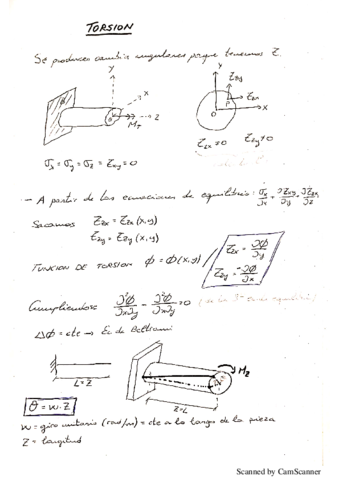 TORSION
Se producen cambios angulares porque tenemos Z.
y
x
z
M_T
y
Z_zy
Z_zx
P
O
x
Z_zx ≠ 0 Z_zy ≠ 0
σ_x = σ_y = σ_z = Z_xy = 0
- A partir de las ecuaciones de equilibrio: σ_x/∂x + ∂Z_xy/∂y + ∂Z_zx/∂z
Sacamos Z_zx = Z_zx (x,y)
Z_zy = Z_zy (x,y)
FUNCION DE TORSION ϕ = ϕ(x,y) / Z_zx = ∂ϕ/∂y
Z_zy = -∂ϕ/∂x
Cumpliendose ∂²ϕ/∂x∂y - ∂²ϕ/∂x∂y = 0
Δϕ = cte → Ec de Beltrami
L=Z
M_z
Z=L
θ = w·Z
W = giro unitario (rad/m) = cte a lo largo de la pieza
Z = longitud
Scanned by CamScanner